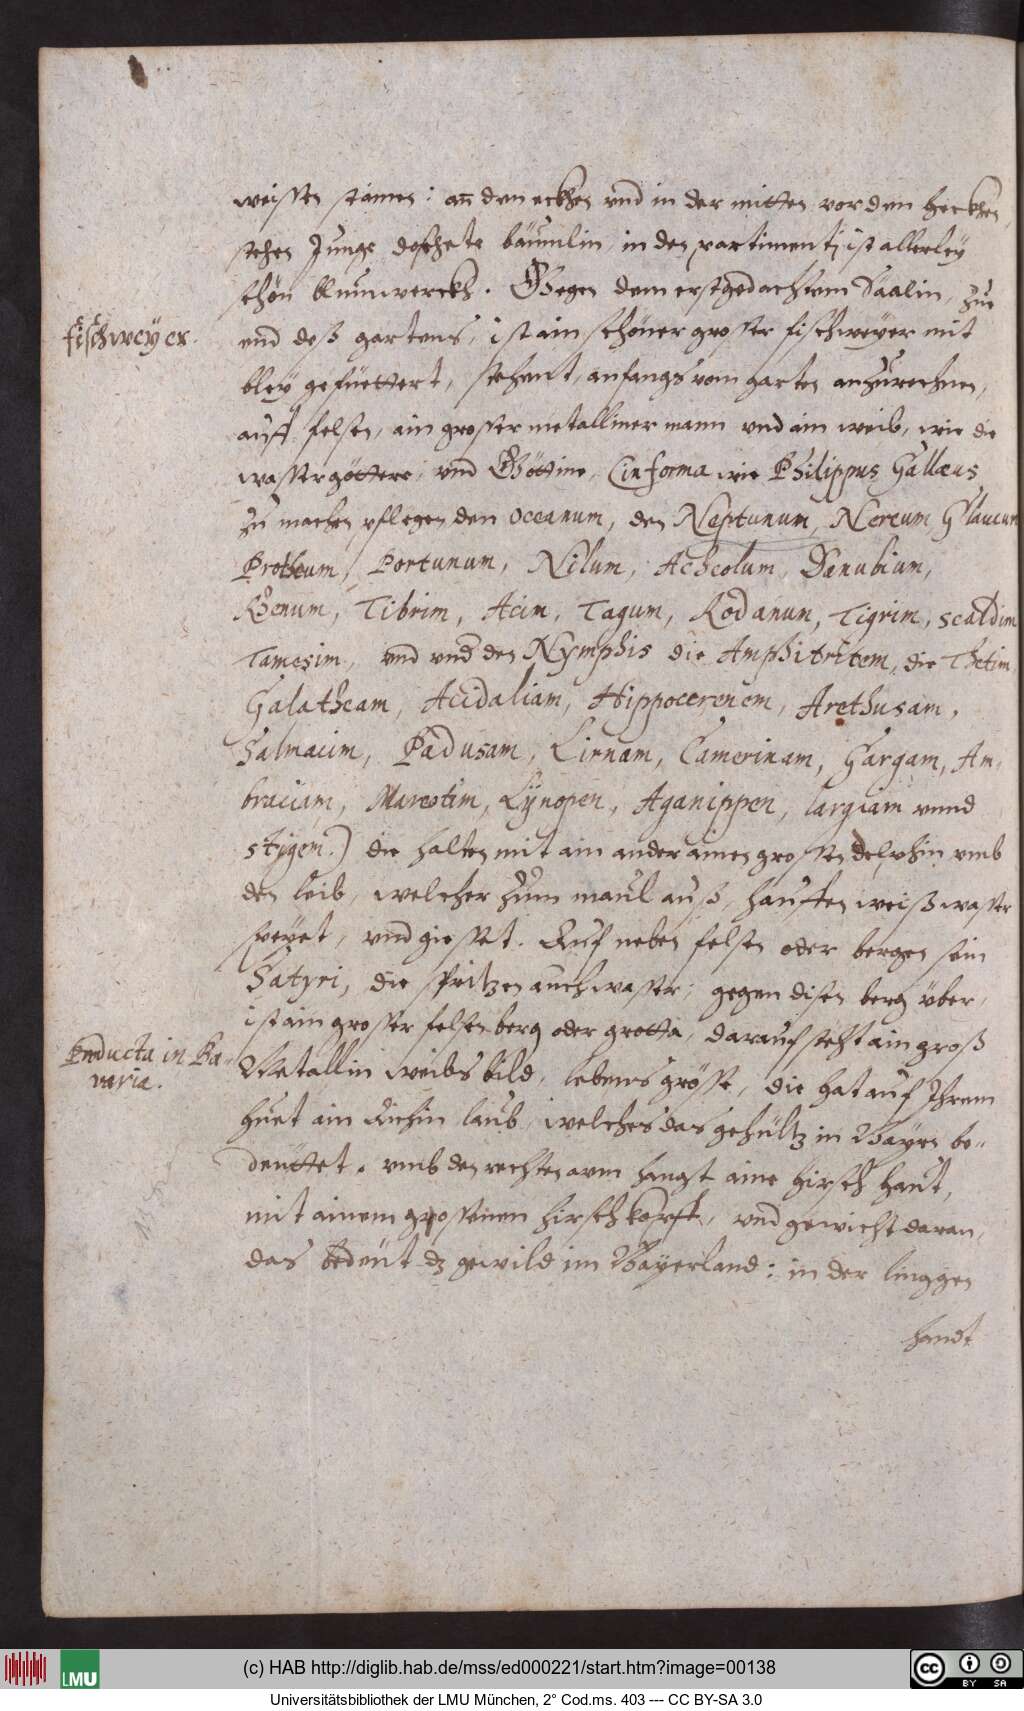 weissen stainen: an den eckhen vnd in der mitten vor den heckhen,
stehen Junge doschete bäumlin, in den partimenti ist allerley
schön blumwerckh. Gegen dem erstgedachtem Säalin, zue
fischweyer.
end deß gartens, ist ain schöner grosser fischweyer mit
bley gefüettert, stehent, anfangs vom garten anzurechnen,
auff felsen, ain grosser metalliner mann vnd ain weib, wie die
wassergöttere, vnd Göttine, (in forma wie Philippus Gallæus
zu machen pflegen den Oceanum, den Neptunum, Nereum, Glaucum
Protheum, Portunum, Nilum, Acheolum, Danubium,
Rhenum, Tibrim, Acin, Tagum, Rodanum, Tigrim, scaldim
Tamesim, vnd vnd den Nymphis die Amphitritem, die Thetim,
Galatheam, Acidaliam, Hippocrenem, Arethusam,
Salmacim, Padusam, Lirnam, Camerinam, Gargam, Am-
braciam, Mareotim, Lÿnopen, Aganippen, largiam vnnd
stÿgem.) die halten mit ain ander ainen grossen delphin vmb
den leib, welcher zum maul auß, hauffen weiß wasser
speyet, vnd giesset. Auf neben felsen oder bergen sein
Satyri, die spritzen auch wasser; gegen disen berg vber,
ist ain grosser felsenberg oder grotta, darauf steht ain groß
Enducta in Ba-
varia.
Metallin weibsbild, lebens grösse, die hat auf Ihrem
huet ain Aichin laub, welches das gehültz in Bayrn be-
deüttet. vmb den rechten arm hangt aine hirsch haut,
mit ainem grossenen hirschkopff, vnd gewicht daran,
das bedeut dz gewild im Bayerland: in der linggen
handt
(c) HAB http://diglib.hab.de/mss/ed000221/start.htm?image=00138
LMU
BY SA
Universitätsbibliothek der LMU München, 2° Cod.ms. 403 --- CC BY-SA 3.0